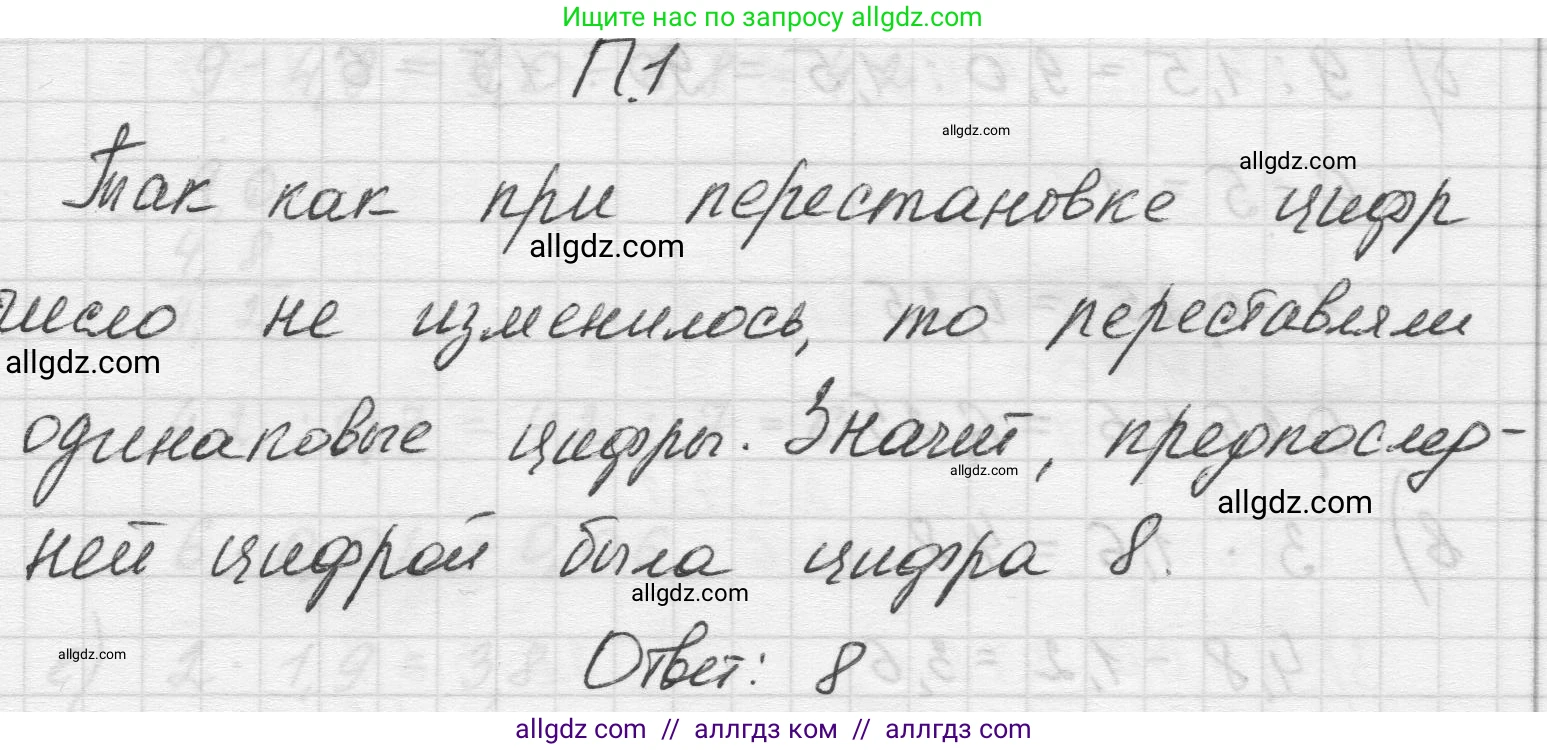 Ищите нас по запросу allgdz.com
П.1
allgdz.com
allgdz.com
Так как при перестановке цифр
allgdz.com
число не изменилось, то переставляли
allgdz.com
одинаковые цифры. Значит, предпослед-
allgdz.com
allgdz.com
ней цифрой была цифра 8.
allgdz.com
allgdz.com
Ответ: 8
allgdz com // аллгдз ком // аллгдз com